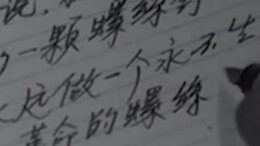 说,
一颗螺丝钉
这做一个永不生
革命的螺丝